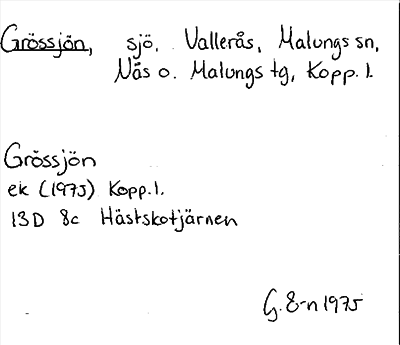 Grössjön, sjö, Vallerås, Malungs sn,
Nås o. Malungs tg, Kopp. l.
Grössjön
ek (1975) Kopp. l.
13D 8c Hästskotjärnen
G. E-n 1975